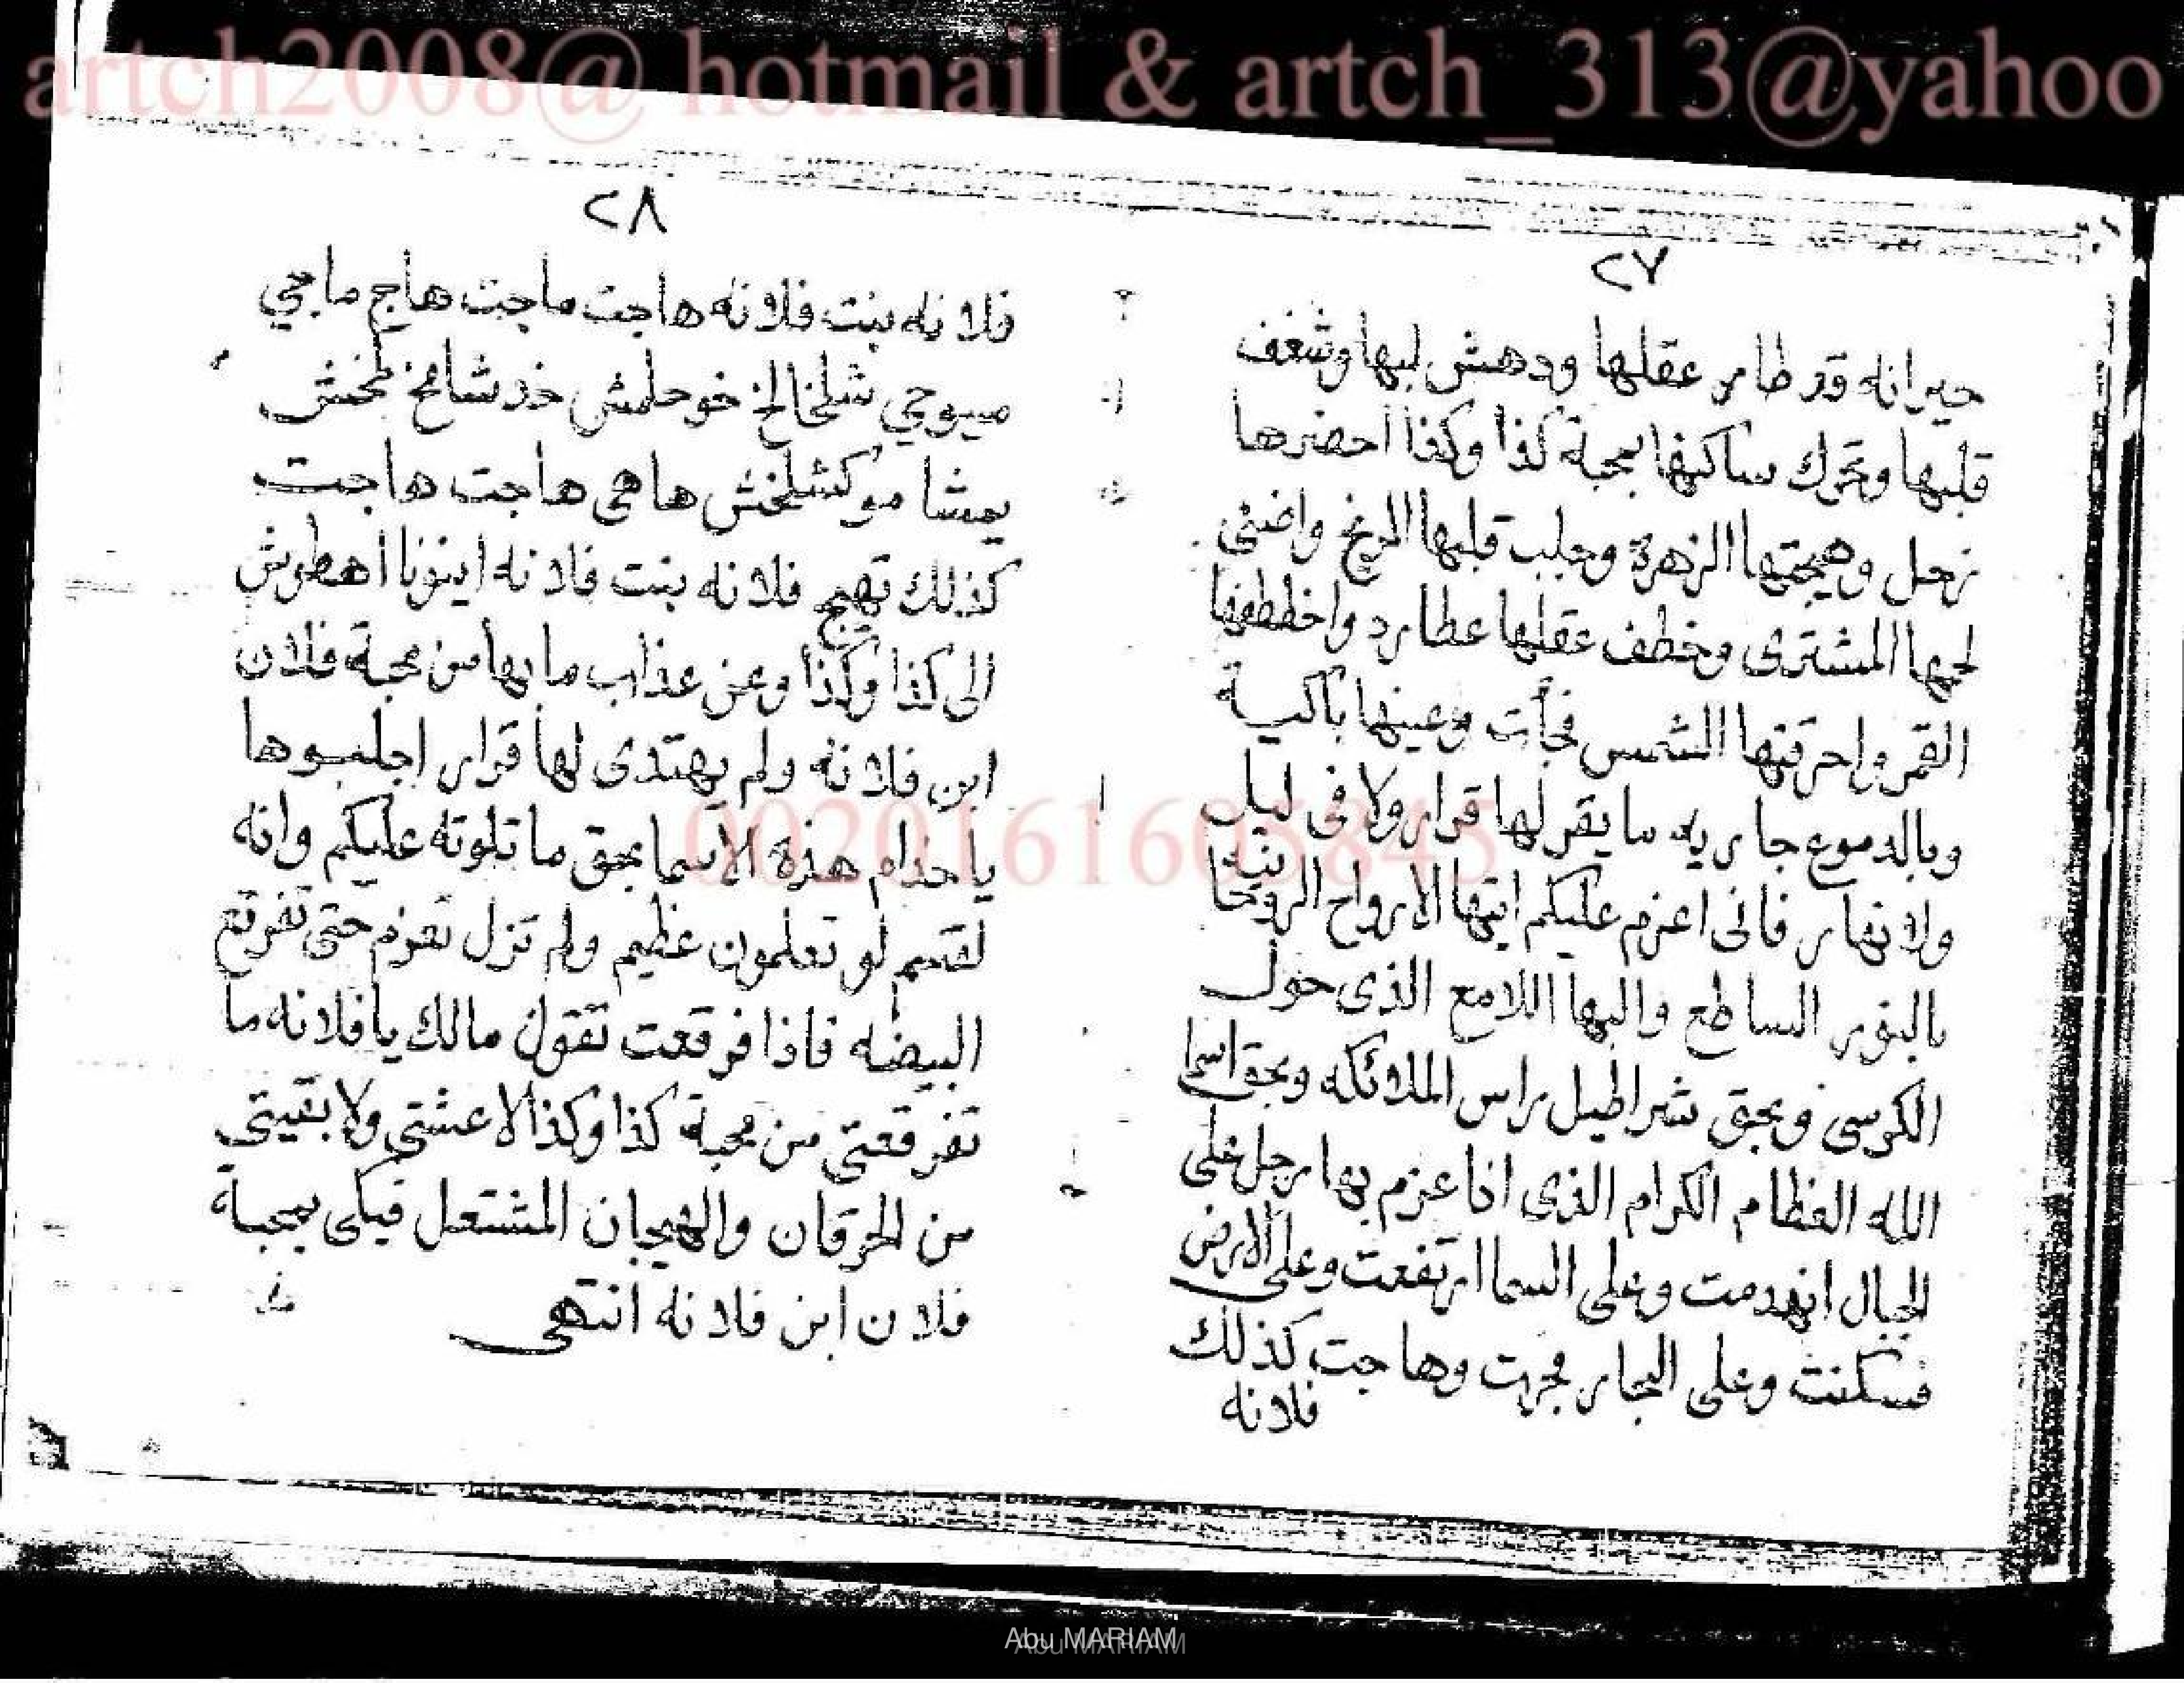 artch2008@ hotmail & artch_313@yahoo
٢٧
حيرانه قد طار عقلها ودهش لبها وشغف
قلبها وتحرك ساكنها بمحبة كذا وكذا احضرها
زحل وهيجتها الزهرة وجلب قلبها المريخ واضنى
لحبها المشترى وخطف عقلها عطارد واخطفها
القمر واحرقتها الشمس فجأت وعينها باكية
وبالدموع جاريه ما يقر لها قرار ولا فى ليل
ولا نهار فانى اعزم عليكم ايتها الارواح الروحانية
بالنور الساطع والبها اللامع الذى حول
الكرسى وبحق شراطيل راس الملائكه وبحق اسما
الله العظام الكرام الذى اذا عزم بها رجل على
الجبال انهدمت وعلى السما ارتفعت وعلى الارض
فسكنت وعلى البحار فجرت وهاجت كذلك
فلانه
٢٨
فلانه بنت فلانه هاجت ماجت هاج ماجي
ميوجي شلخالخ خوحلمش خدشامخ طخش
يمشا موكشلخش هاهى هاجت هاجت
كذلك تهيج فلانه بنت فلانه اينونا اهطوش
الى كذا وكذا وعن عذاب ما بها من محبة فلان
ابن فلانه ولم يهتدى لها قرار اجلبوها
يا خدام هذه الاسما بحق ما تلوته عليكم وانه
لقسم لو تعلمون عظيم ولم تزل تعزم حتى تفرقع
البيضه فاذا فرقعت تقول مالك يا فلانه ما
تفرقعتى من محبة كذا وكذا لا عشتى ولا بقيتى
من الحرقان والهيجان المشتعل فيكى بمحبة
فلان ابن فلانه انتهى
0020161605845
Abu MARIAM